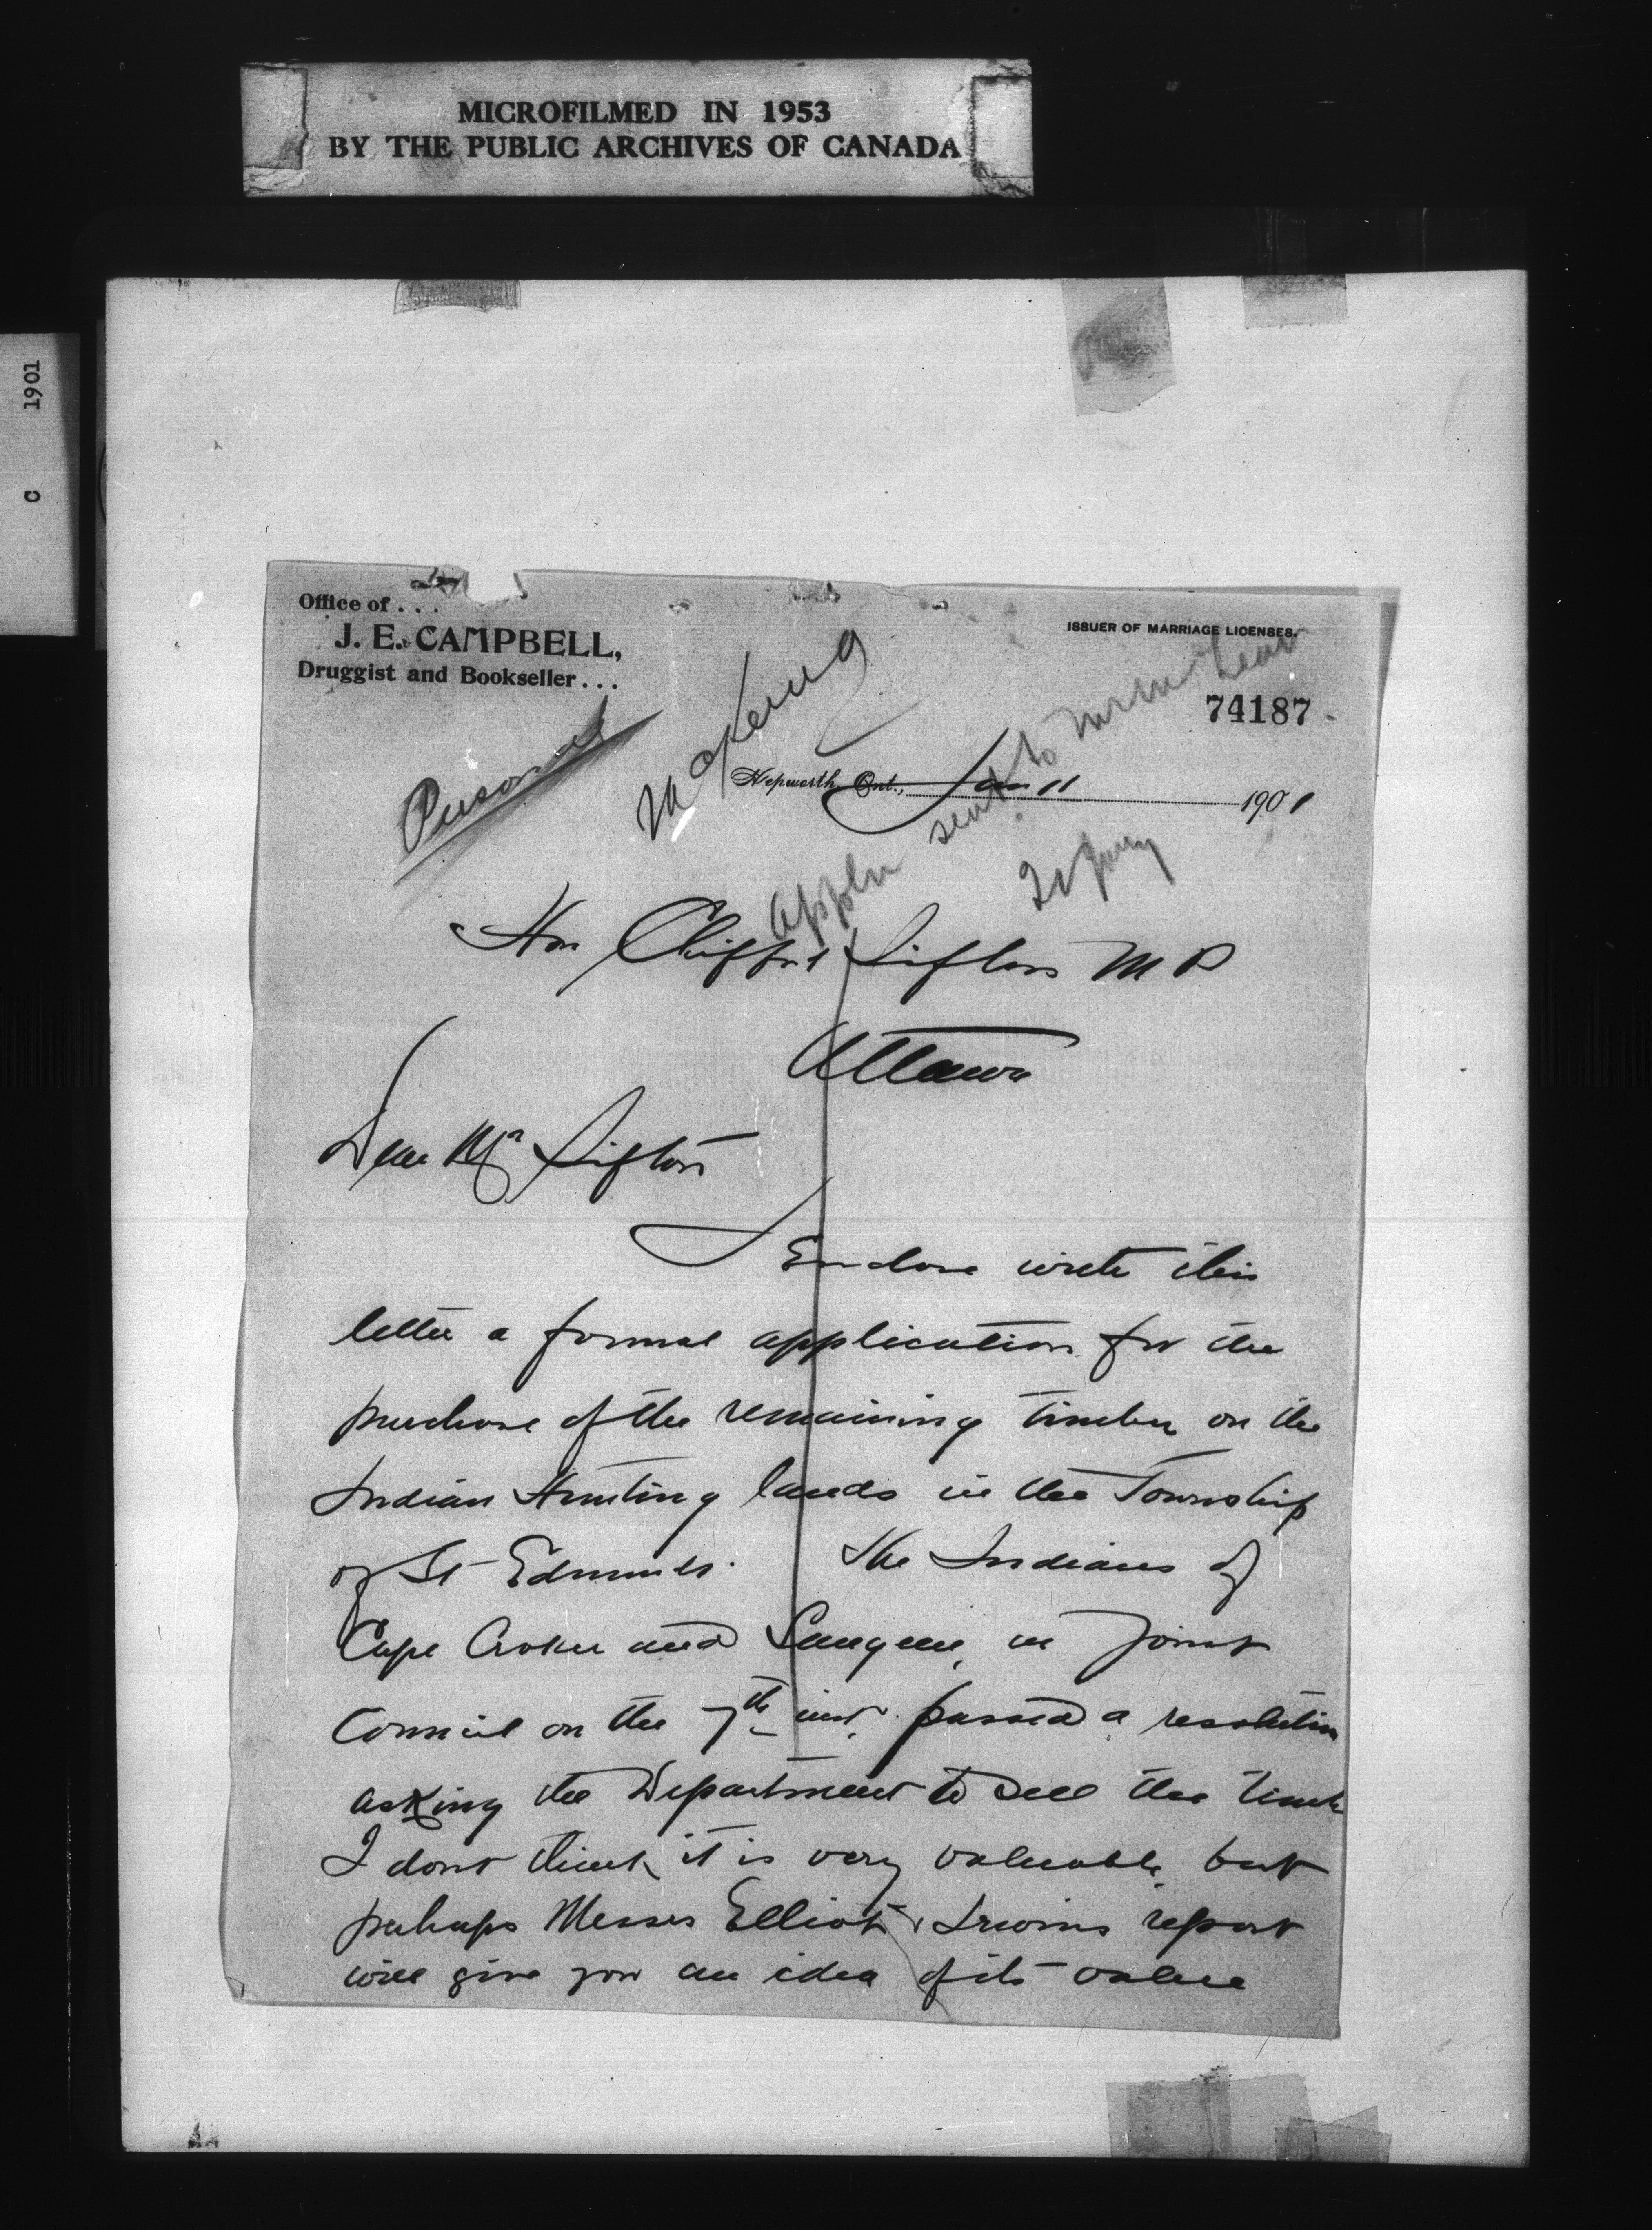 MICROFILMED IN 1953
BY THE PUBLIC ARCHIVES OF CANADA
C 1901
Office of . . .
J. E. CAMPBELL,
Druggist and Bookseller . . .
ISSUER OF MARRIAGE LICENSES.
74187
Personal
Hepworth, Ont., Jan 11 1901
appln sent to
Hon Clifford Sifton M P
Ottawa
Dear Mr Sifton
I Enclose with this
letter a formal application for the
purchase of the remaining timber on the
Indian Hunting lands in the Township
of St Edmunds. The Indians of
Cape Croker and Saugeen, in joint
Council on the 7th inst. passed a resolution
asking the Department to sell the timber
I dont think it is very valuable, but
perhaps Messrs Elliot & Irwins report
will give you an idea of its value